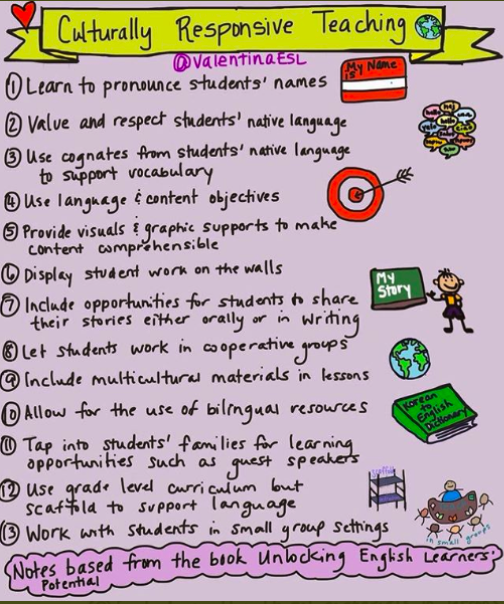 Culturally Responsive Teaching
@ValentinaESL
My Name is
① Learn to pronounce students' names
② Value and respect students' native language
③ Use cognates from students' native language
to support vocabulary
④ Use language & content objectives
⑤ Provide visuals & graphic supports to make
content comprehensible
⑥ Display student work on the walls
My
Story
⑦ Include opportunities for students to share
their stories either orally or in writing
⑧ Let students work in cooperative groups
⑨ Include multicultural materials in lessons
⑩ Allow for the use of bilingual resources
Korean
to
English
Dictionary
⑪ Tap into students' families for learning
opportunities such as guest speakers
⑫ Use grade level curriculum but
scaffold to support language
scaffold
⑬ Work with students in small group settings
in small groups
Notes based from the book Unlocking English Learners'
Potential